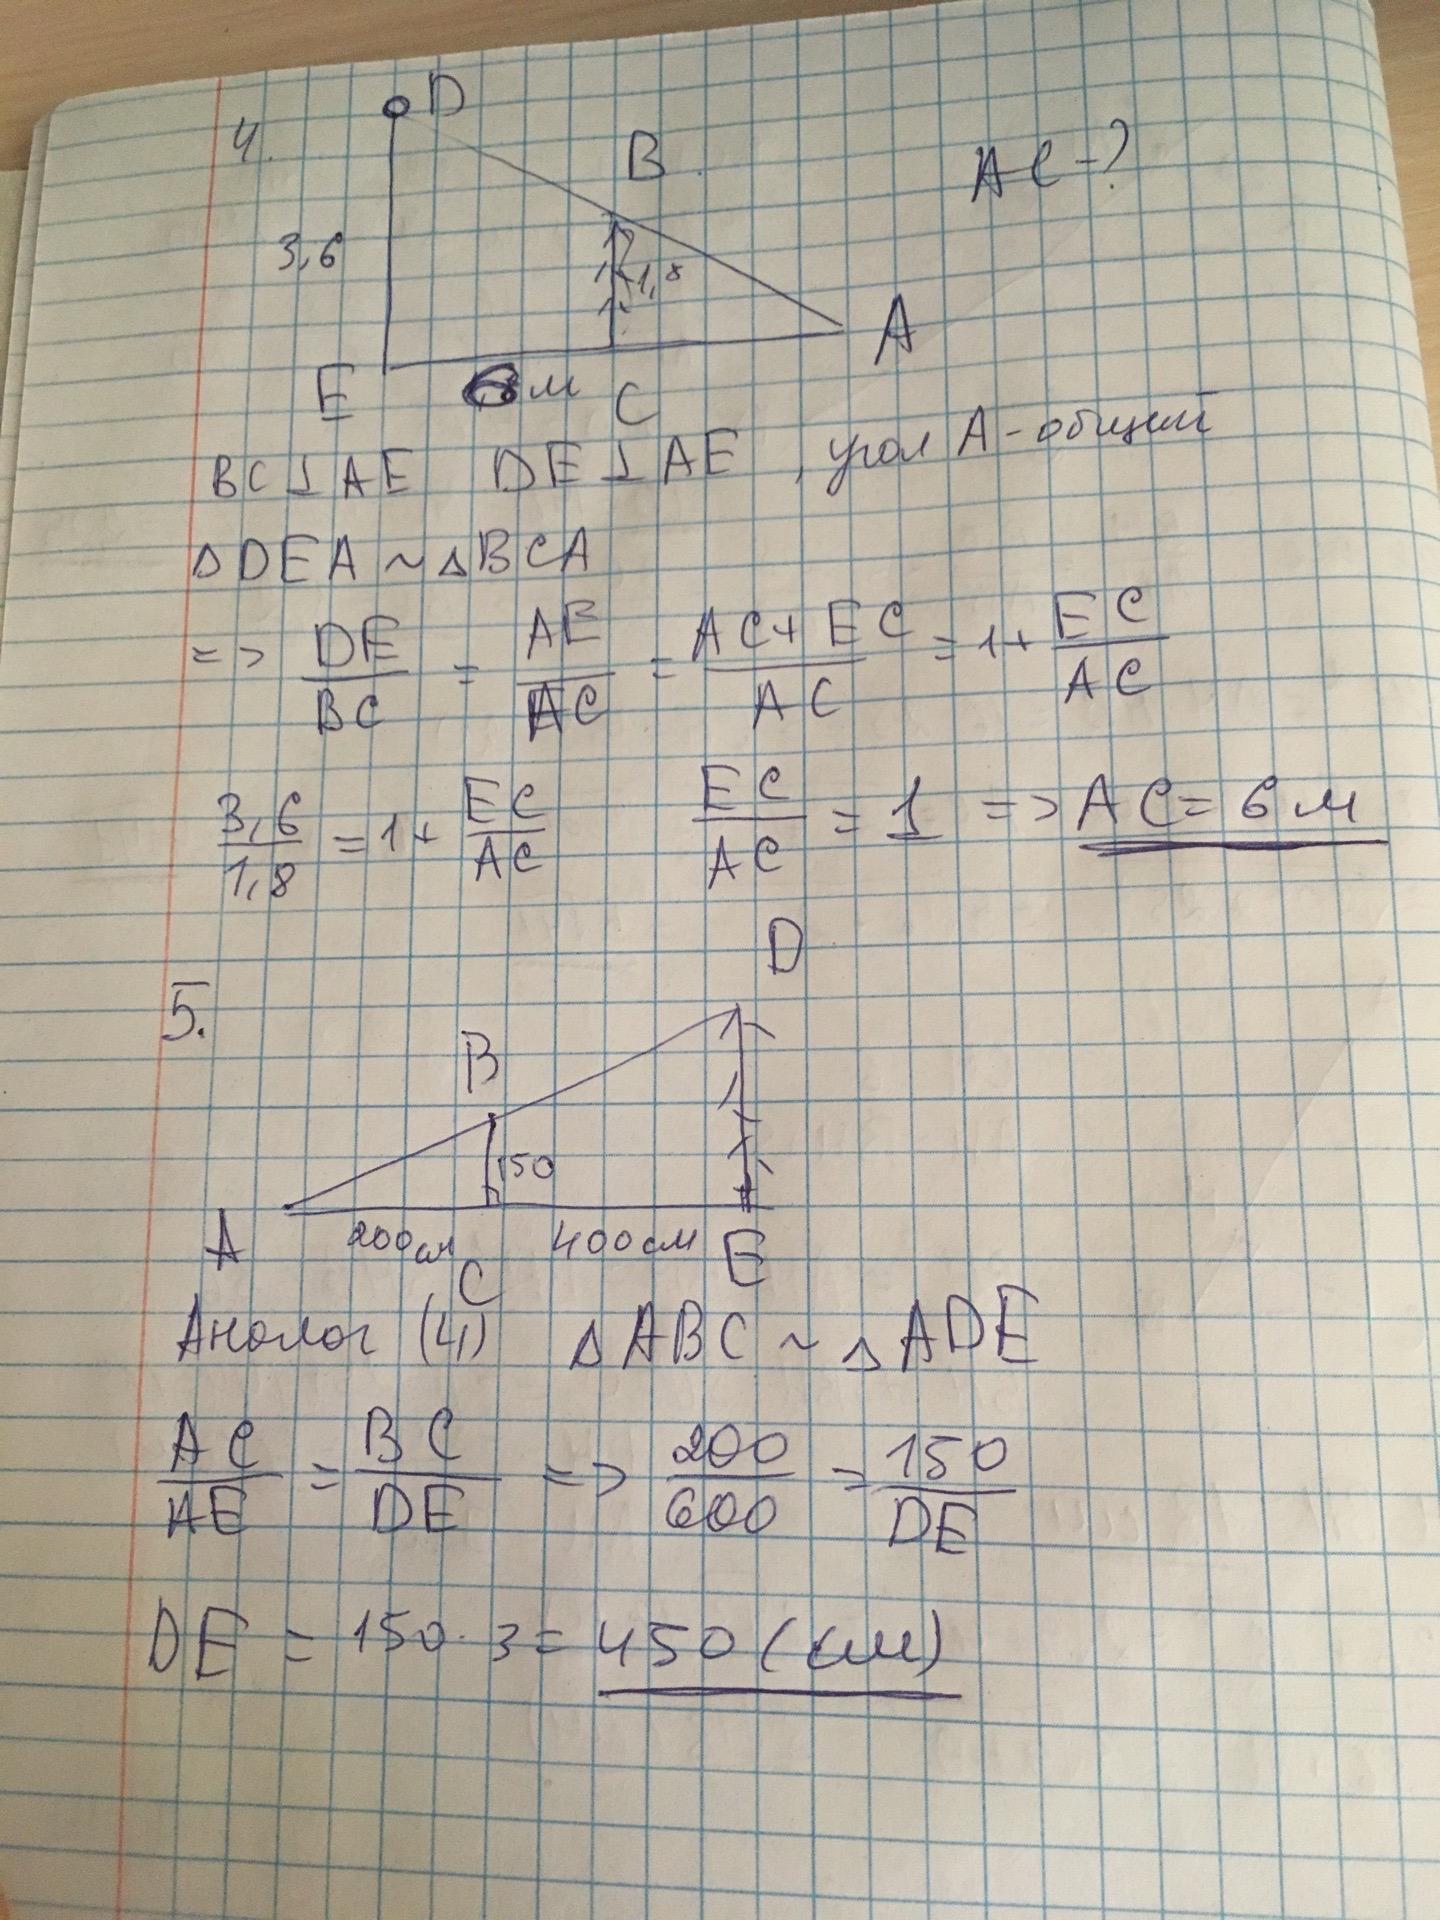 4.
D
B
AC-?
3,6
1,8
A
E
м
C
BC⊥AE DE⊥AE, угол A-общий
ΔDEA ~ ΔBCA
=> DE/BC = AE/AC = AC+EC/AC = 1+ EC/AC
3,6/1,8 = 1+ EC/AC EC/AC = 1 => AC= 6 м
D
5.
B
150
A
200см
400см
E
C
Аналог (4) ΔABC ~ ΔADE
AC/AE = BC/DE => 200/600 = 150/DE
DE = 150·3= 450 (см)